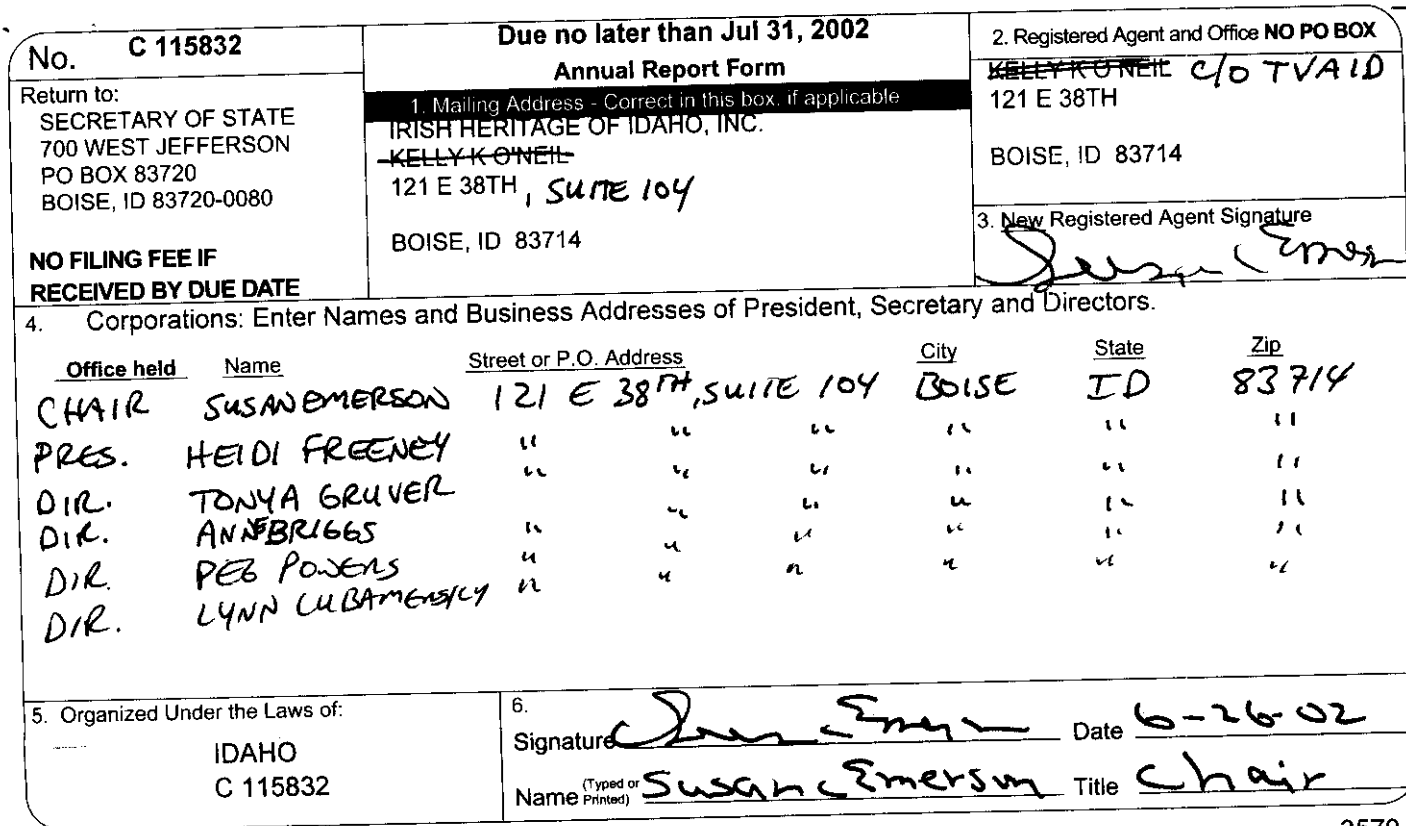 No. C 115832
Return to:
SECRETARY OF STATE
700 WEST JEFFERSON
PO BOX 83720
BOISE, ID 83720-0080
NO FILING FEE IF
RECEIVED BY DUE DATE
Due no later than Jul 31, 2002
Annual Report Form
1. Mailing Address - Correct in this box, if applicable
IRISH HERITAGE OF IDAHO, INC.
KELLY K O'NEIL
121 E 38TH, SUITE 104
BOISE, ID 83714
2. Registered Agent and Office NO PO BOX
KELLY K O NEIL C/O TVAID
121 E 38TH
BOISE, ID 83714
3. New Registered Agent Signature
4. Corporations: Enter Names and Business Addresses of President, Secretary and Directors.
Office held Name Street or P.O. Address City State Zip
CHAIR SUSAN EMERSON 121 E 38TH, SUITE 104 BOISE ID 83714
PRES. HEIDI FREENEY " " " " " "
DIR. TONYA GRUVER " " " " " "
DIR. ANNE BRIGGS " " " " "
DIR. PEG POWERS " " " " " "
DIR. LYNN " " " " " "
"
5. Organized Under the Laws of:
IDAHO
C 115832
6.
Signature Date 6-26-02
Name (Typed or Printed) Susan Emerson Title Chair
3579